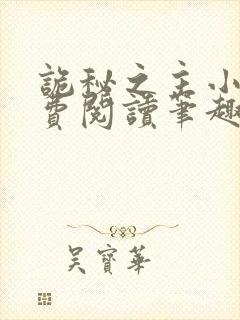 詭秘之主小
費閱讀筆趣
吳寶華